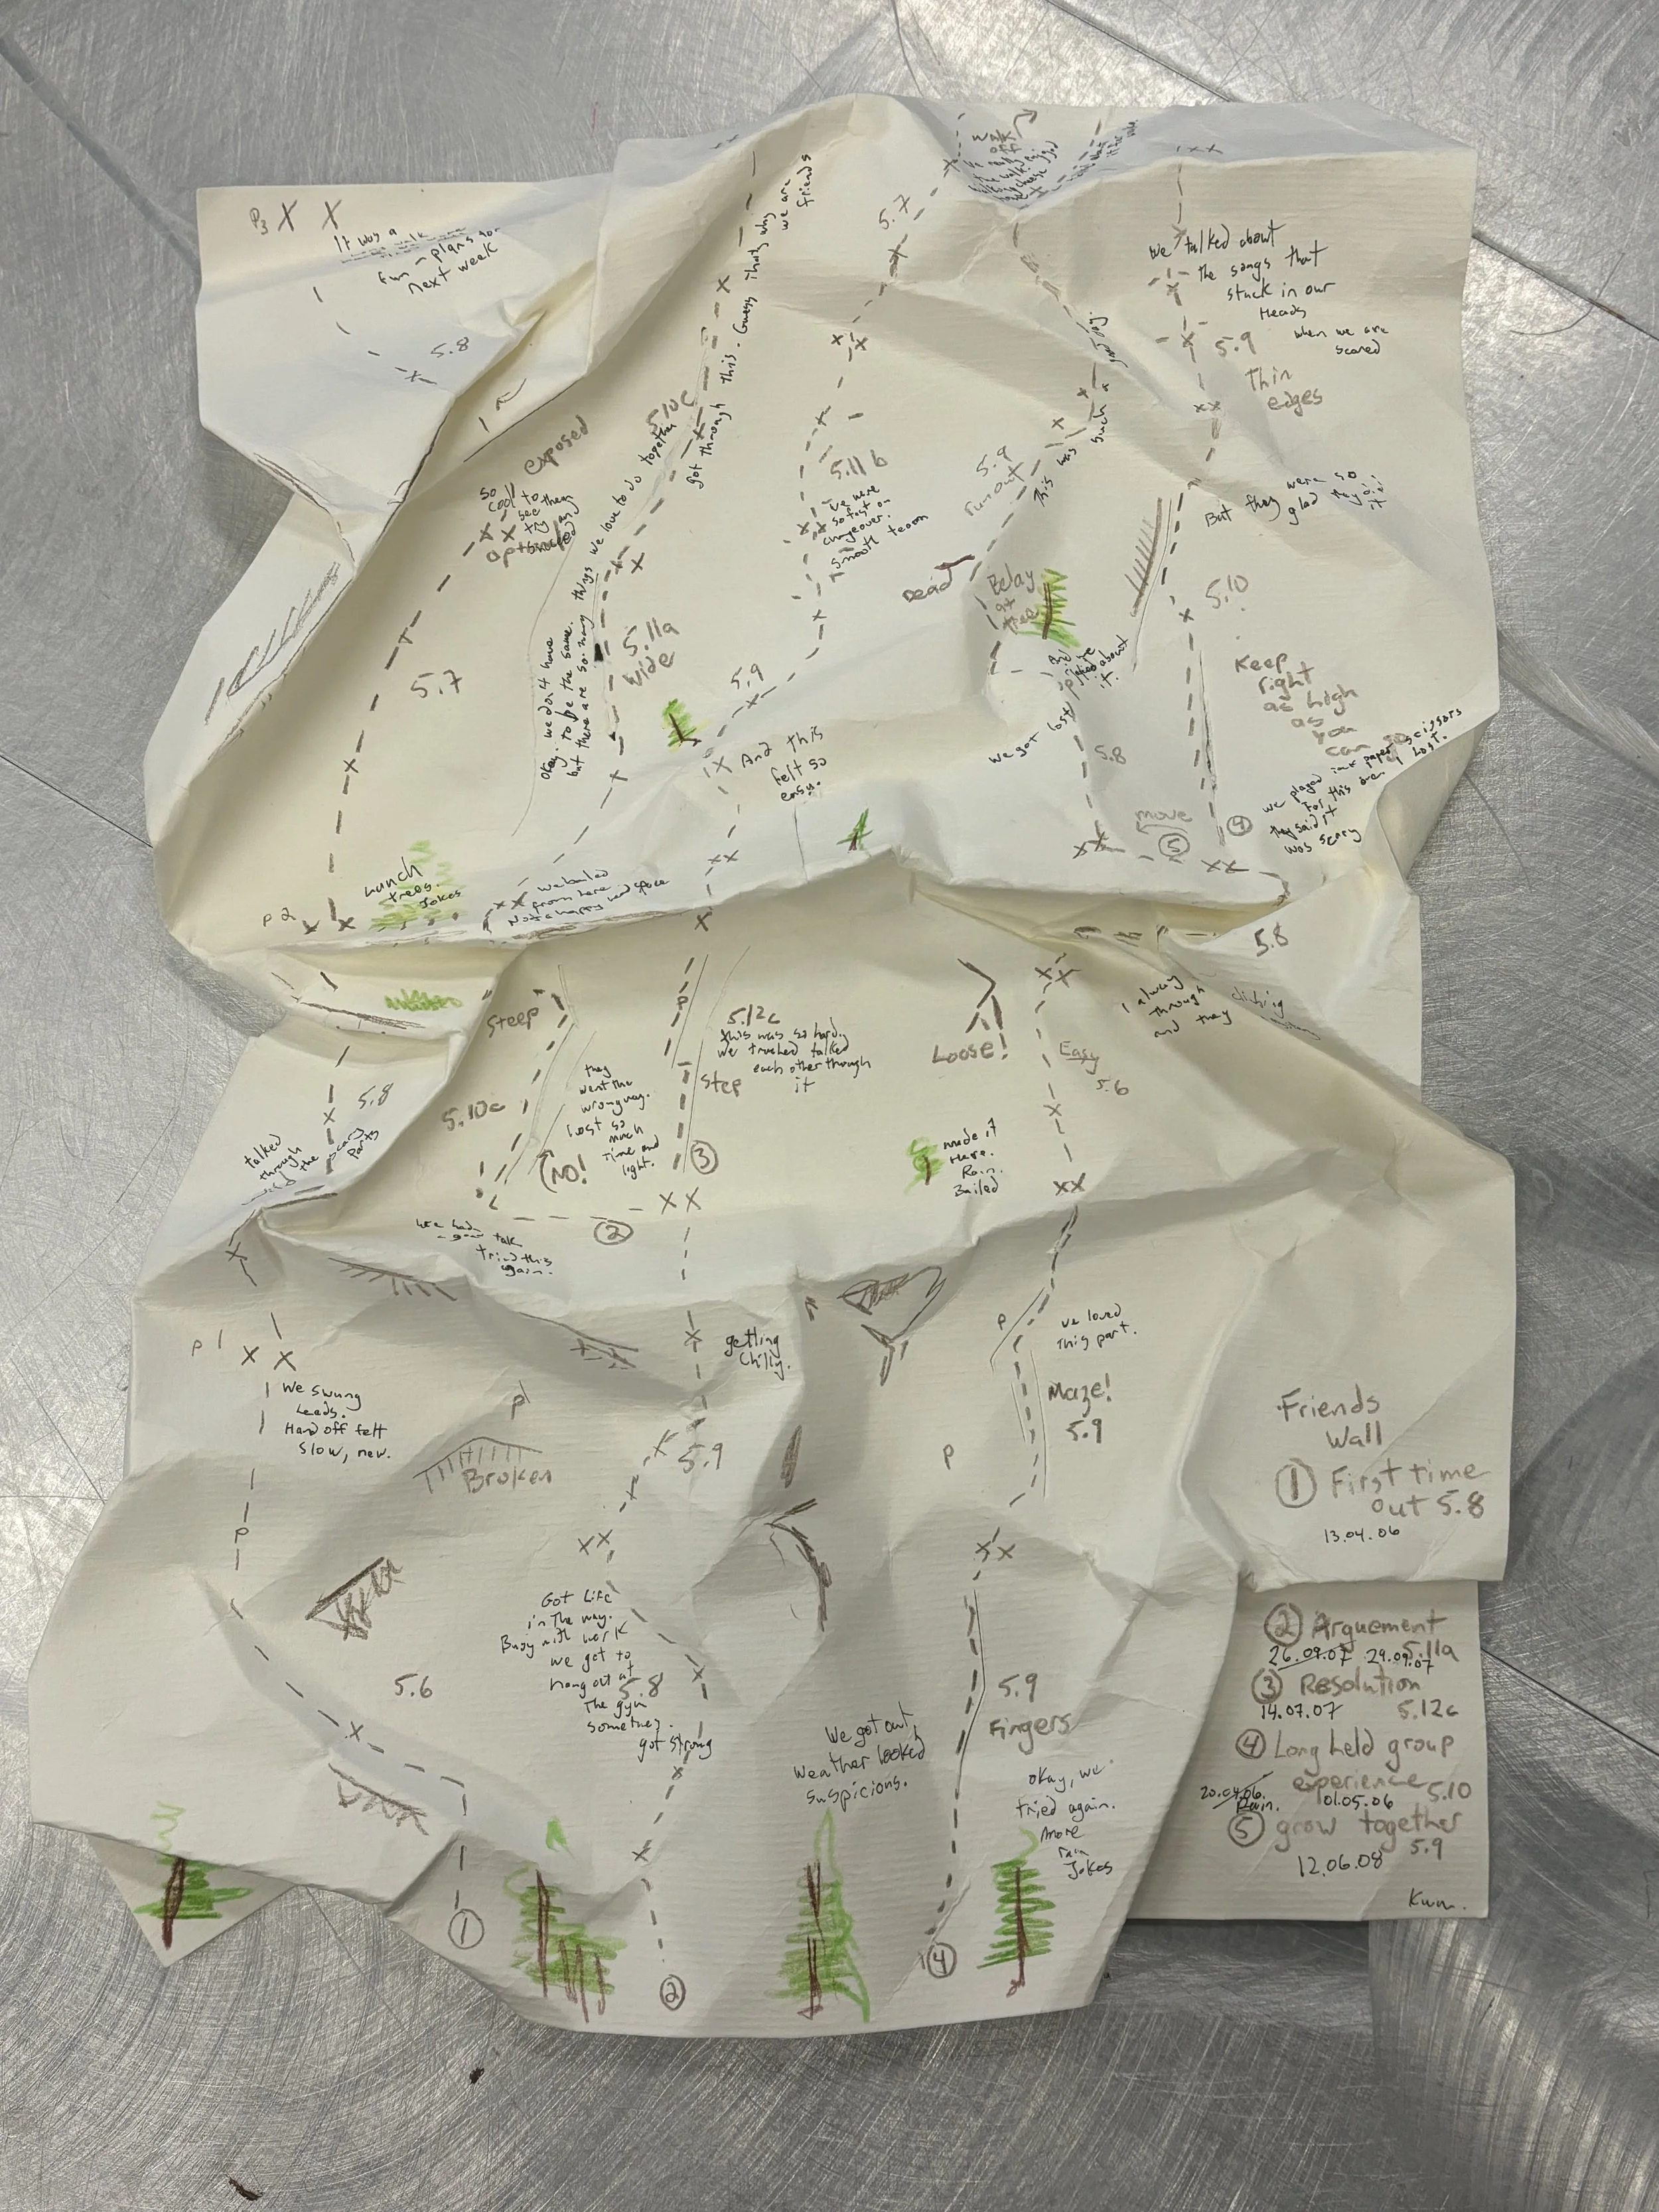 P3 X X
It was a
fun - plans for
next week
5.8
walk
off
5.7
got through this. Guess that's why
we are
friends
We talked about
the songs that
stuck in our
Heads
when we are
scared
5.9
Thin
edges
exposed
so
cool to
see them
try and
optional
5.10c
Okay. we don't have
to be the same.
but there are so many things we love to do together
5.11b
we were
so fast on
changeover.
smooth team
5.9
run out
This was such a good day.
But they were so
glad they did
it
Dead
Belay
at
tree
5.7
5.11a
wide
5.9
And this
felt so
easy.
we got lost
about
it.
5.8
5.10
Keep
right
as high
as
you
can
we played rock paper scissors
For this area I lost.
they said it
was scary
move
5
4
Lunch
trees.
Jokes
P2
we bailed
from here
Not a happy head space
5.8
I always
through
and they
climbing
steep
5.10c
they
went the
wrong way.
Lost so
much
time and
light.
NO!
P
5.12c
this was so hard.
we trusted talked
each other through
it
step
3
Loose!
Easy
5.6
made it
Here.
Rain.
Bailed
5.8
talked
through
the scary
parts
2
we had
a good talk
tried this
again.
P1
We swung
leads.
Hand off felt
slow, new.
getting
chilly.
P
we loved
this part.
Maze!
5.9
P
P1
Broken
5.9
P
Got Life
in the way.
Busy with work
we get to
hang out at
the gym
sometimes.
got strong
5.8
5.6
We got out,
weather looked
suspicions.
5.9
Fingers
okay, we
tried again.
more
rain
Jokes
1
2
4
Friends
Wall
1 First time
out 5.8
13.04.06
2 Arguement
5.11a
26.09.07 29.09.07
3 Resolution
14.07.07 5.12c
4 Long held group
experience 5.10
20.04.06. 01.05.06
Rain.
5 grow together
5.9
12.06.08